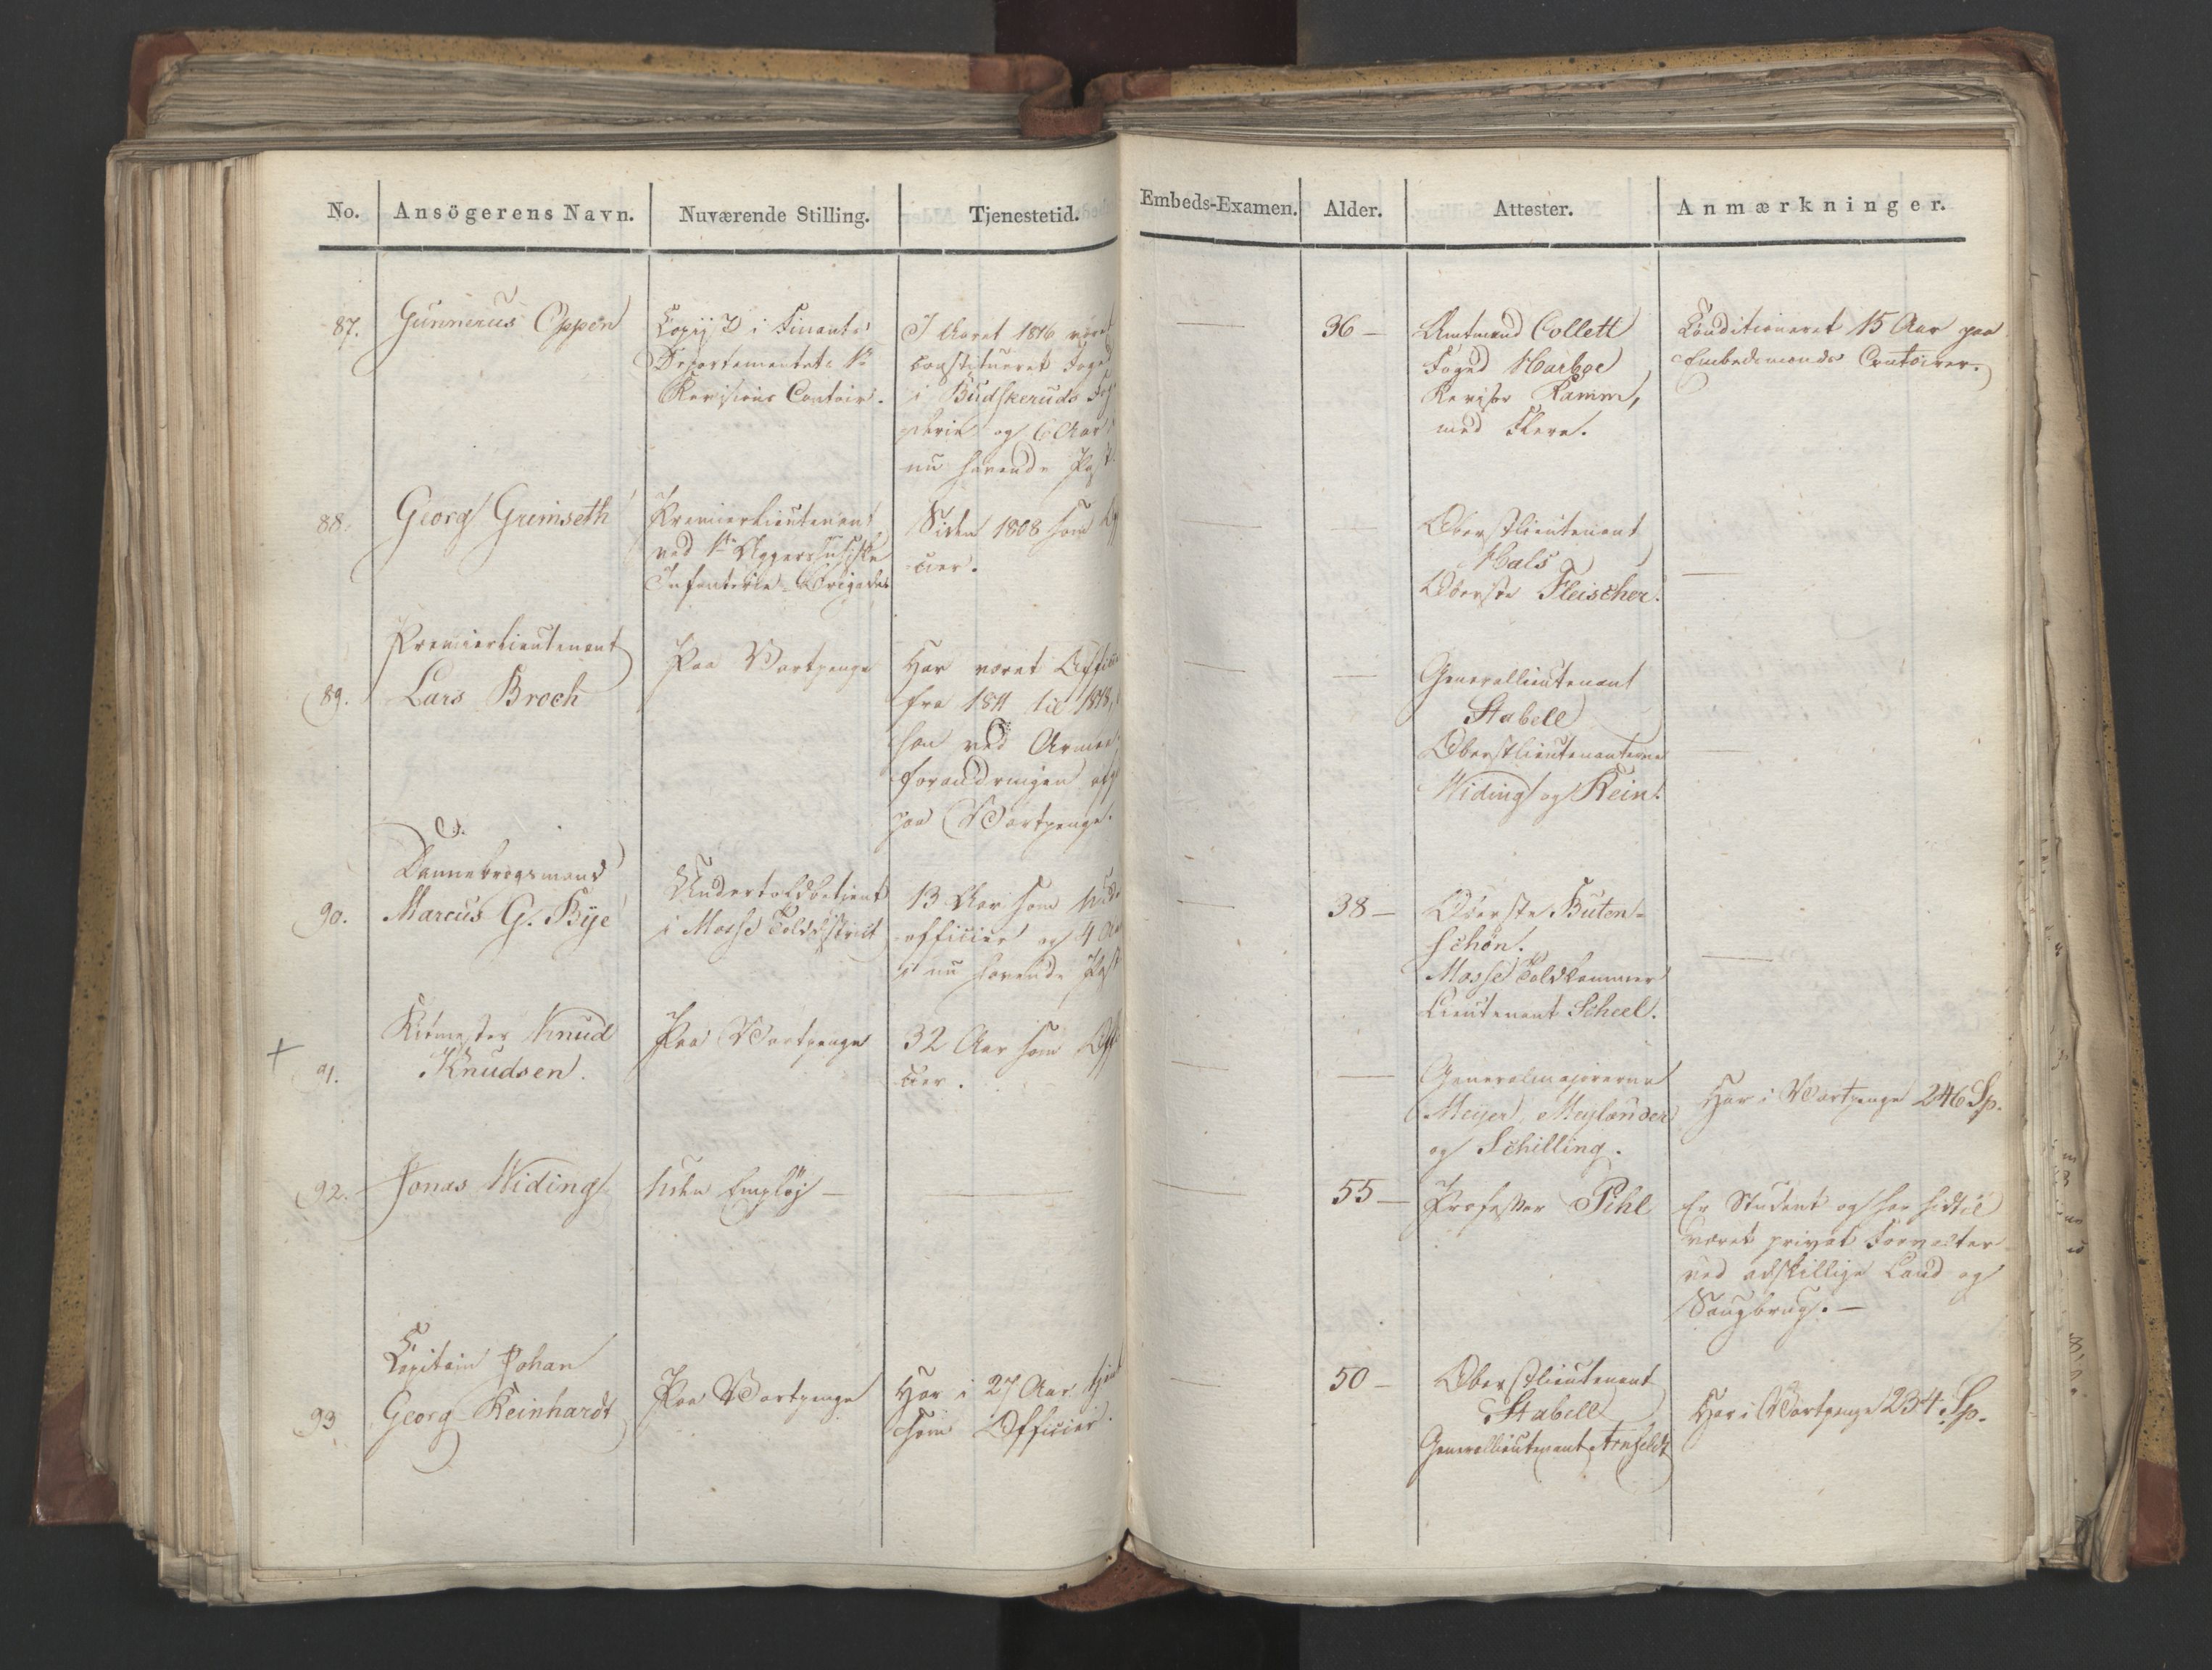 No. Ansögerens Navn. Nuværende Stilling. Tjenestetid. Embeds-Examen. Alder. Attester. Anmærkninger.
87.
Gunnerus Oppen
Copiist i Finants
Departementets 1ste
Revisions Contoir.
I Aaret 1816 været
constitueret Foged
i Budskeruds Fog
derie og 6 Aar i
nu havende Post.
—
36 —
Amtmand Collett
Foged Harboe
Revisor Ramm,
med Flere.
Conditioneret 15 Aar paa
Embedsmænds Contoirer.
88.
Georg Grimseth
Premierlieutenant
ved 1ste Aggershusiske
Infanterie-Brigade
Siden 1808 som Offi
cier.
—
—
Oberstlieutenant
Hals
Oberste Fleischer.
—
89.
Premierlieutenant
Lars Broch
Paa Vartpenge
Har været Officier
fra 1811 til 1818,
han ved Armee
forandringen
paa Vartpenge.
—
—
Generallieutenant
Stabell
Oberstlieutenanterne
Widing og Rein.
—
90.
Dannebrogsmand
Marcus G. Bye
Undertoldbetjent
i Mosse Tolddistrict
13 Aar som Under
officier og 4 Aar
i nu havende Post
—
38 —
Oberste Buten-
schön.
Mosse Toldkammer
Lieutenant Scheel.
—
+
91.
Ritmester Knud
Knudsen.
Paa Vartpenge
32 Aar som Offi
cier.
—
—
Generalmajorerne
Meijer, Meylænder
og Schilling.
Har i Vartpenge 246 Sp.
92.
Jonas Widing
Uden Emploj —
—
—
55 —
Professor Pihl
Er Student og har hidtil
været privat Forvalter
ved adskillige Land og
Saugbrug. —
93
Capitain Johan
Georg Reinhardt
Paa Vartpenge
Har i 27 Aar tjent
som Officier.
—
50 —
Oberstlieutenant
Stabell
Generallieutenant Arnfeldt
Har i Vartpenge 234 Sp.